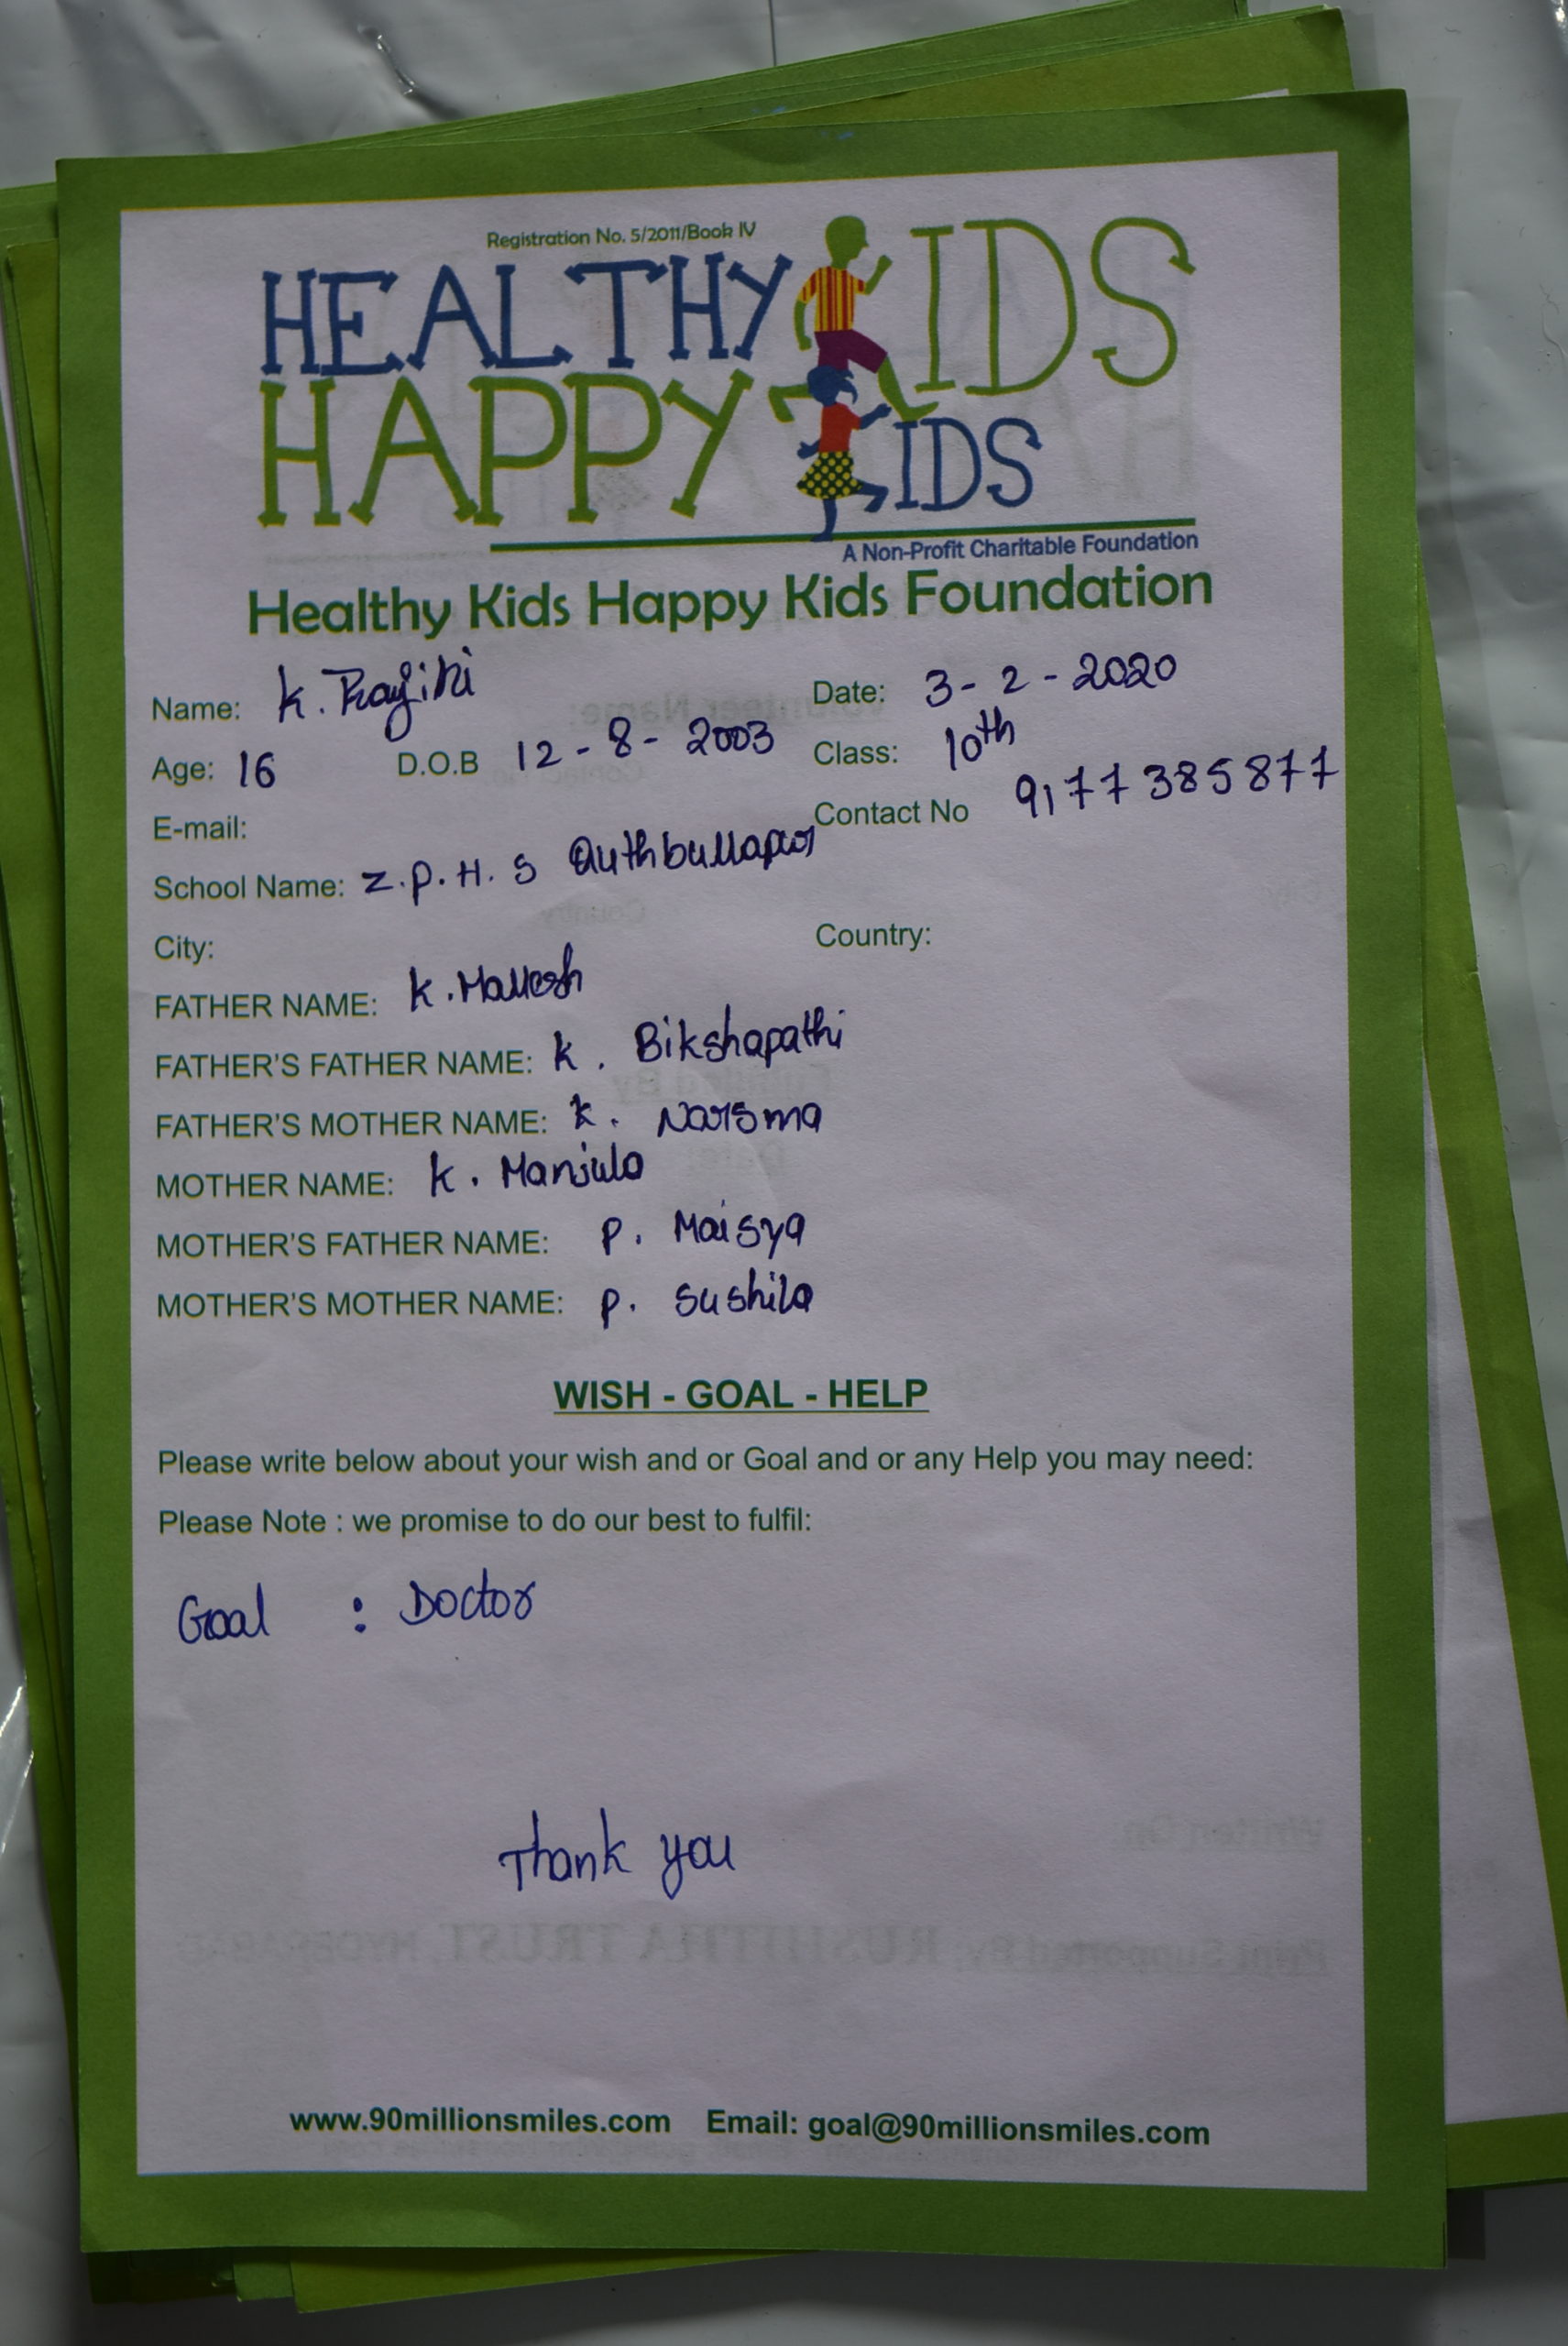 Registration No. 5/2011/Book IV
HEALTHY KIDS
HAPPY KIDS
A Non-Profit Charitable Foundation
Healthy Kids Happy Kids Foundation
Name: K. Rajini Date: 3-2-2020
Age: 16 D.O.B 12-8-2003 Class: 10th
E-mail: Contact No 9177385877
School Name: Z.P.H.S Quthbullapur
City: Country:
FATHER NAME: K. Mallesh
FATHER'S FATHER NAME: K. Bikshapathi
FATHER'S MOTHER NAME: K. Narsma
MOTHER NAME: K. Manjula
MOTHER'S FATHER NAME: P. Maisya
MOTHER'S MOTHER NAME: P. Sushila
WISH - GOAL - HELP
Please write below about your wish and or Goal and or any Help you may need:
Please Note : we promise to do our best to fulfil:
Goal : Doctor
Thank you
www.90millionsmiles.com Email: goal@90millionsmiles.com